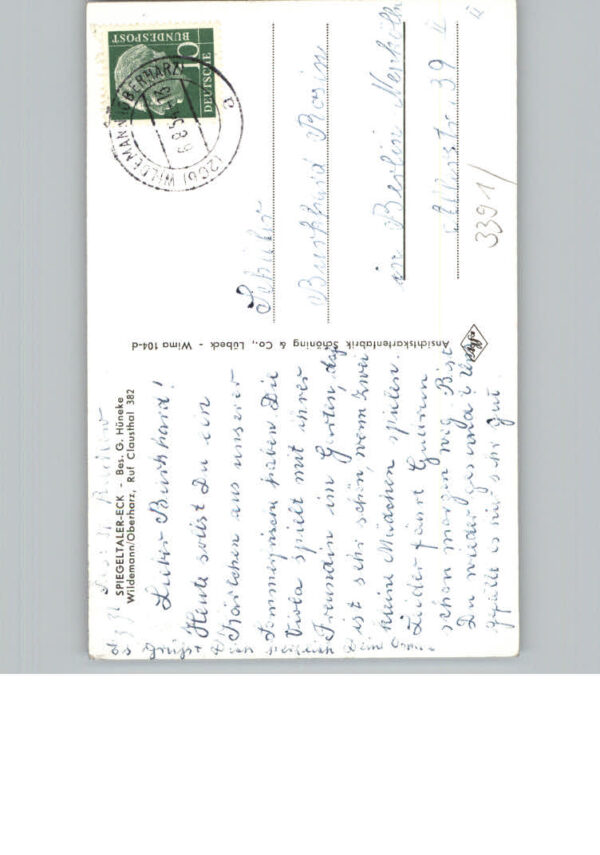 SPIEGELTALER-ECK - Bes. G. Hüneke
Wildemann/Oberharz, Ruf Clausthal 382
Lieber Burkhard!
Heute sollst Du ein
Kärtchen aus unserer
Sommerfrische haben. Die
Viola spielt mit ihrer
Freundin im Garten, das
ist sehr schön, wenn zwei
kleine Mädchen spielen.
Leider fährt Gudrun
schon morgen weg. Bist
Du wieder gesund? Uns
gefällt es hier sehr gut.
Es grüßt Dich herzlich Dein
Ansichtskartenfabrik Schöning & Co., Lübeck - Wima 104-d
DEUTSCHE
BUNDESPOST
10
(20b) WILDEMANN (OBERHARZ)
a
Schüler
Burkhard Rosin
in Berlin Neukölln
39 II
3391/